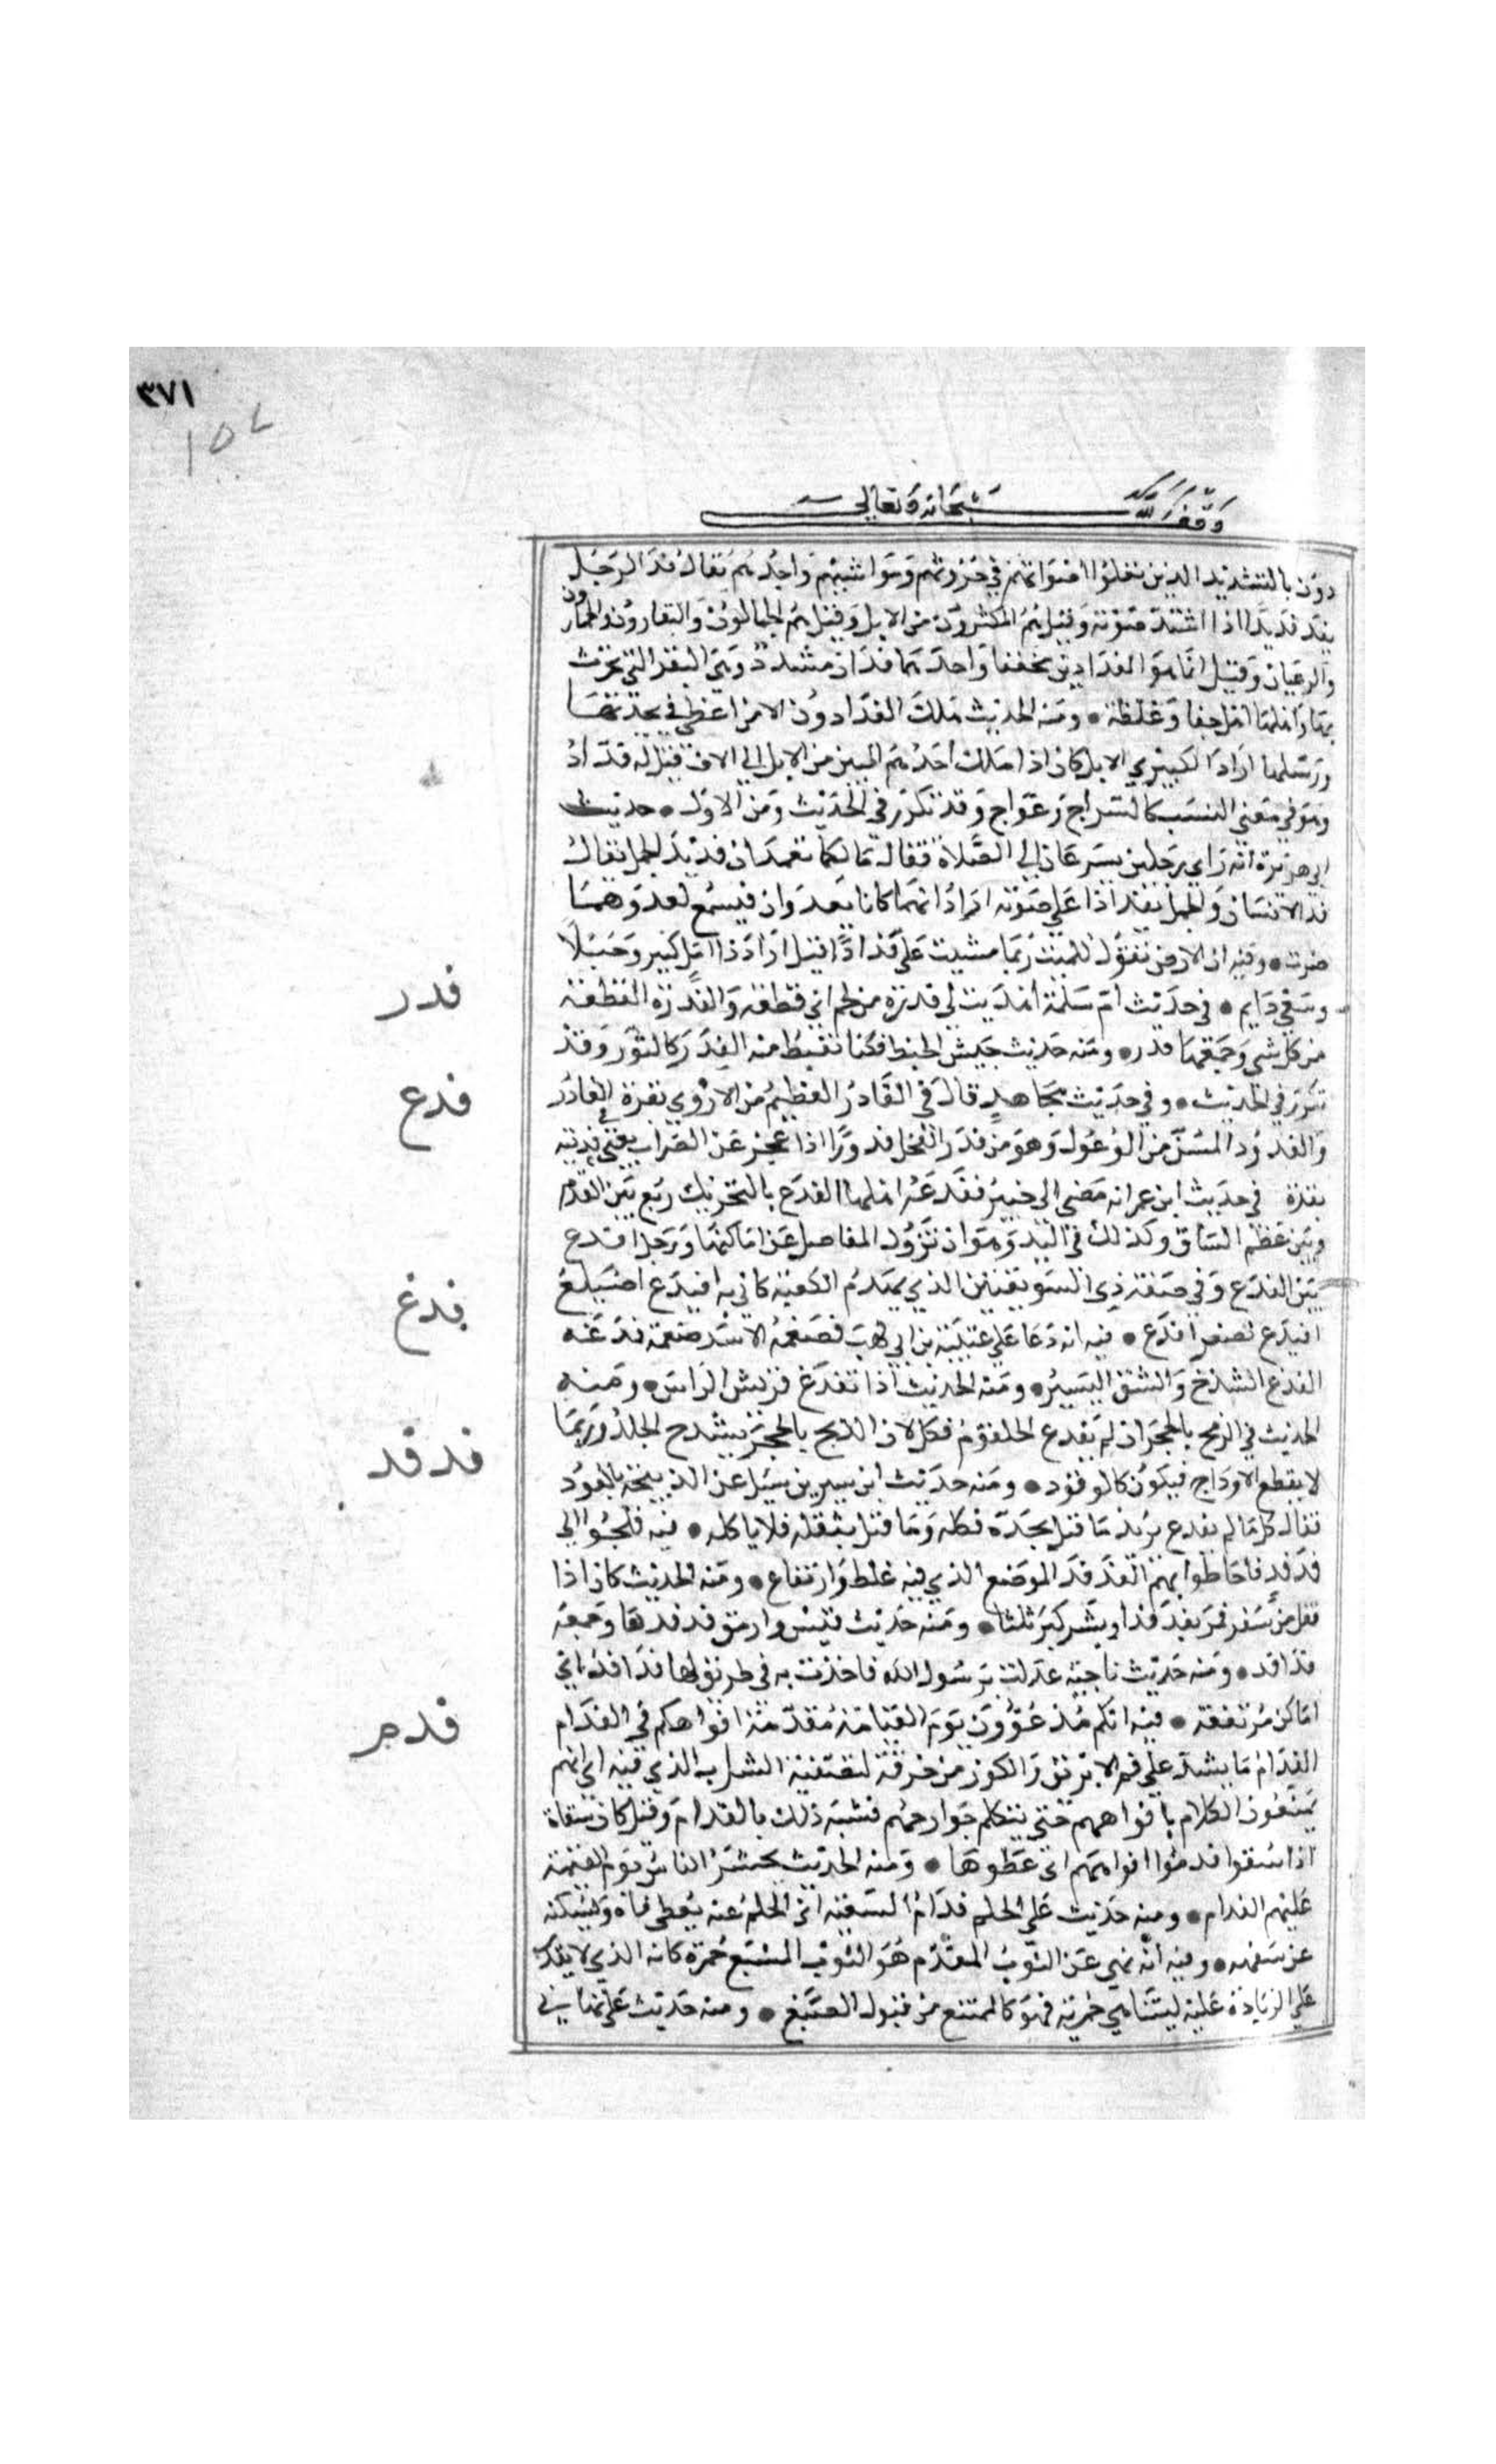 ٣٧١
وقف لله سبحانه وتعالى
دون بالتشديد الذين تعلوا اصواتهم في حروثهم ومواشيهم واحدهم يقال فد الرجل
يفد فديدا اذا اشتد صوته وقيل هم المكثرون من الابل وقيل هم الجمالون والبقارون والحمارون
والرعيان وقيل انما هو الفدادين مخففا واحدهما فدان مشدد وهي البقر التي تحرث
بها واهلها اهل جفا وغلظة ومنه الحديث هلك الفدادون الا من اعطى في نجدتها
ورسلها اراد الكبيري الابل كان اذا ملك احدهم المبين من الابل الى الالف قيل له فداد
وهو في معنى النسب كالسراج وعواج وقد تكرر في الحديث ومن الاول حديث
ابي هريرة انه راى رجلين يسرعان الى الصلاة فقال ما لكما تفدان فديد الجمل يقال
فد الانسان والجمل يفد اذا علي صوته اراد انهما كانا يعدوان فيسمع لعدوهما
صوت وفيه ان الارض تقول للميت ربما مشيت علي فدادا قيل اراد ذا امل كبير وخيلا
وسعي دايم في حديث ام سلمة اهديت لي فدرة من لحم اي قطعة والفدرة القطعة
من كل شي وجمعها فدر ومنه حديث جيش الخبط فكنا نقتطع منه الفدر كالثور وقد
تكرر في الحديث وفي حديث مجاهد قال في الفادر العظيم من الاروي بقرة الفادر
والفدور المسن من الوعول وهو من فدر الفحل فدورا اذا عجز عن الضراب يعني في فديته
بقرة في حديث ابن عمر انه مضى الى خيبر ففدعه اهلها الفدع بالتحريك زيغ بين القدم
وبين عظم الساق وكذلك في اليد وهو ان تزول المفاصل عن اماكنها ورجل افدع
بين الفدع وفي صفة ذي السويقتين الذي يهدم الكعبة كاني به افيدع اصيلع
افيدع تصغير افدع فيه انه دعا علي عتيبة بن ابي لهب فضغمه الاسد ضغمة فدغه
الفدغ الشدخ والشق اليسير ومنه الحديث اذا تفدغ قريش الراس ومنه
الحديث في الذبح بالحجر ان لم يفدغ الحلقوم فكل لان الذبح بالحجر يشدخ الجلد وربما
لا يقطع الاوداج فيكون كالموقوذ ومنه حديث ابن سيرين سيل عن الذبيحة بالعود
فقال كل ما لم يفدغ يريد ما قتل بحده فكله وما قتل بثقله فلا ياكله فيه فلجئوا الى
فدفد فاحاطوا بهم الفدفد الموضع الذي فيه غلظ وارتفاع ومنه الحديث كان اذا
قفل من سفر فمر بفدفد او نشز كبر ثلثا ومنه حديث قيس وارمق فدفدها وجمعه
فدافد ومنه حديث ناجية عدلت برسول الله فاخذت به في طريق لها فدافد اي
اماكن مرتفعة فيه انكم مدعوون يوم القيامة مقدمة افواهكم في الفدام
الفدام ما يشد علي فم الابريق والكوز من خرقة لتصفية الشراب الذي فيه اي انهم
يمنعون الكلام بافواههم حتى تتكلم جوارحهم فشبه ذلك بالفدام وقيل كان سقاة
اذا سقوا فدموا افواههم اي غطوها ومنه الحديث يحشر الناس يوم القيمة
عليهم الفدام ومنه حديث علي الحلم فدام السفيه اي الحلم عنه يغطي فاه ويسكته
عن سفهه وفيه انه نهي عن الثوب المفدم هو الثوب المشبع حمرة كانه الذي لا يقدر
علي الزيادة عليه لتناهي حمرته فهو كالممتنع من قبول الصبغ ومنه حديث علي نهاني
فدر
فدع
فدغ
فدفد
فدم